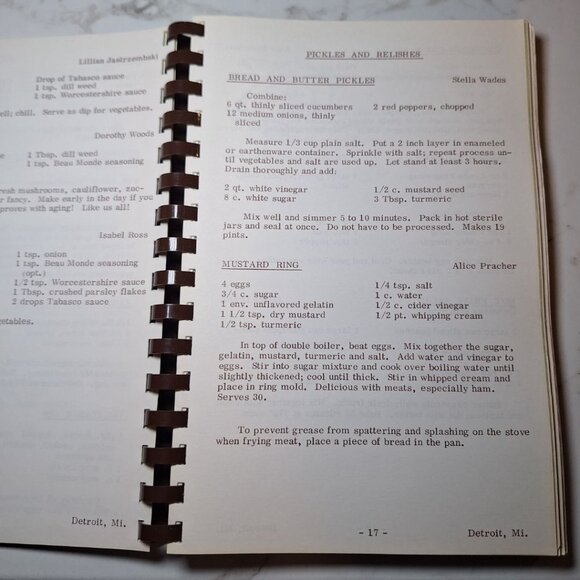 Lillian Jastrzembski
Drop of Tabasco sauce
1 tsp. dill weed
1 tsp. Worcestershire sauce
chill. Serve as dip for vegetables.
Dorothy Woods
1 Tbsp. dill weed
1 tsp. Beau Monde seasoning
mushrooms, cauliflower,
fancy. Make early in the day if you
with aging! Like us all!
Isabel Ross
1 tsp. onion
1 tsp. Beau Monde seasoning
(opt.)
1/2 tsp. Worcestershire sauce
1 Tbsp. crushed parsley flakes
2 drops Tabasco sauce
Detroit, Mi.
PICKLES AND RELISHES
BREAD AND BUTTER PICKLES Stella Wades
Combine:
6 qt. thinly sliced cucumbers 2 red peppers, chopped
12 medium onions, thinly
sliced
Measure 1/3 cup plain salt. Put a 2 inch layer in enameled
or earthenware container. Sprinkle with salt; repeat process un-
til vegetables and salt are used up. Let stand at least 3 hours.
Drain thoroughly and add:
2 qt. white vinegar 1/2 c. mustard seed
8 c. white sugar 3 Tbsp. turmeric
Mix well and simmer 5 to 10 minutes. Pack in hot sterile
jars and seal at once. Do not have to be processed. Makes 19
pints.
MUSTARD RING Alice Pracher
4 eggs 1/4 tsp. salt
3/4 c. sugar 1 c. water
1 env. unflavored gelatin 1/2 c. cider vinegar
1 1/2 tsp. dry mustard 1/2 pt. whipping cream
1/2 tsp. turmeric
In top of double boiler, beat eggs. Mix together the sugar,
gelatin, mustard, turmeric and salt. Add water and vinegar to
eggs. Stir into sugar mixture and cook over boiling water until
slightly thickened; cool until thick. Stir in whipped cream and
place in ring mold. Delicious with meats, especially ham.
Serves 30.
To prevent grease from spattering and splashing on the stove
when frying meat, place a piece of bread in the pan.
- 17 - Detroit, Mi.